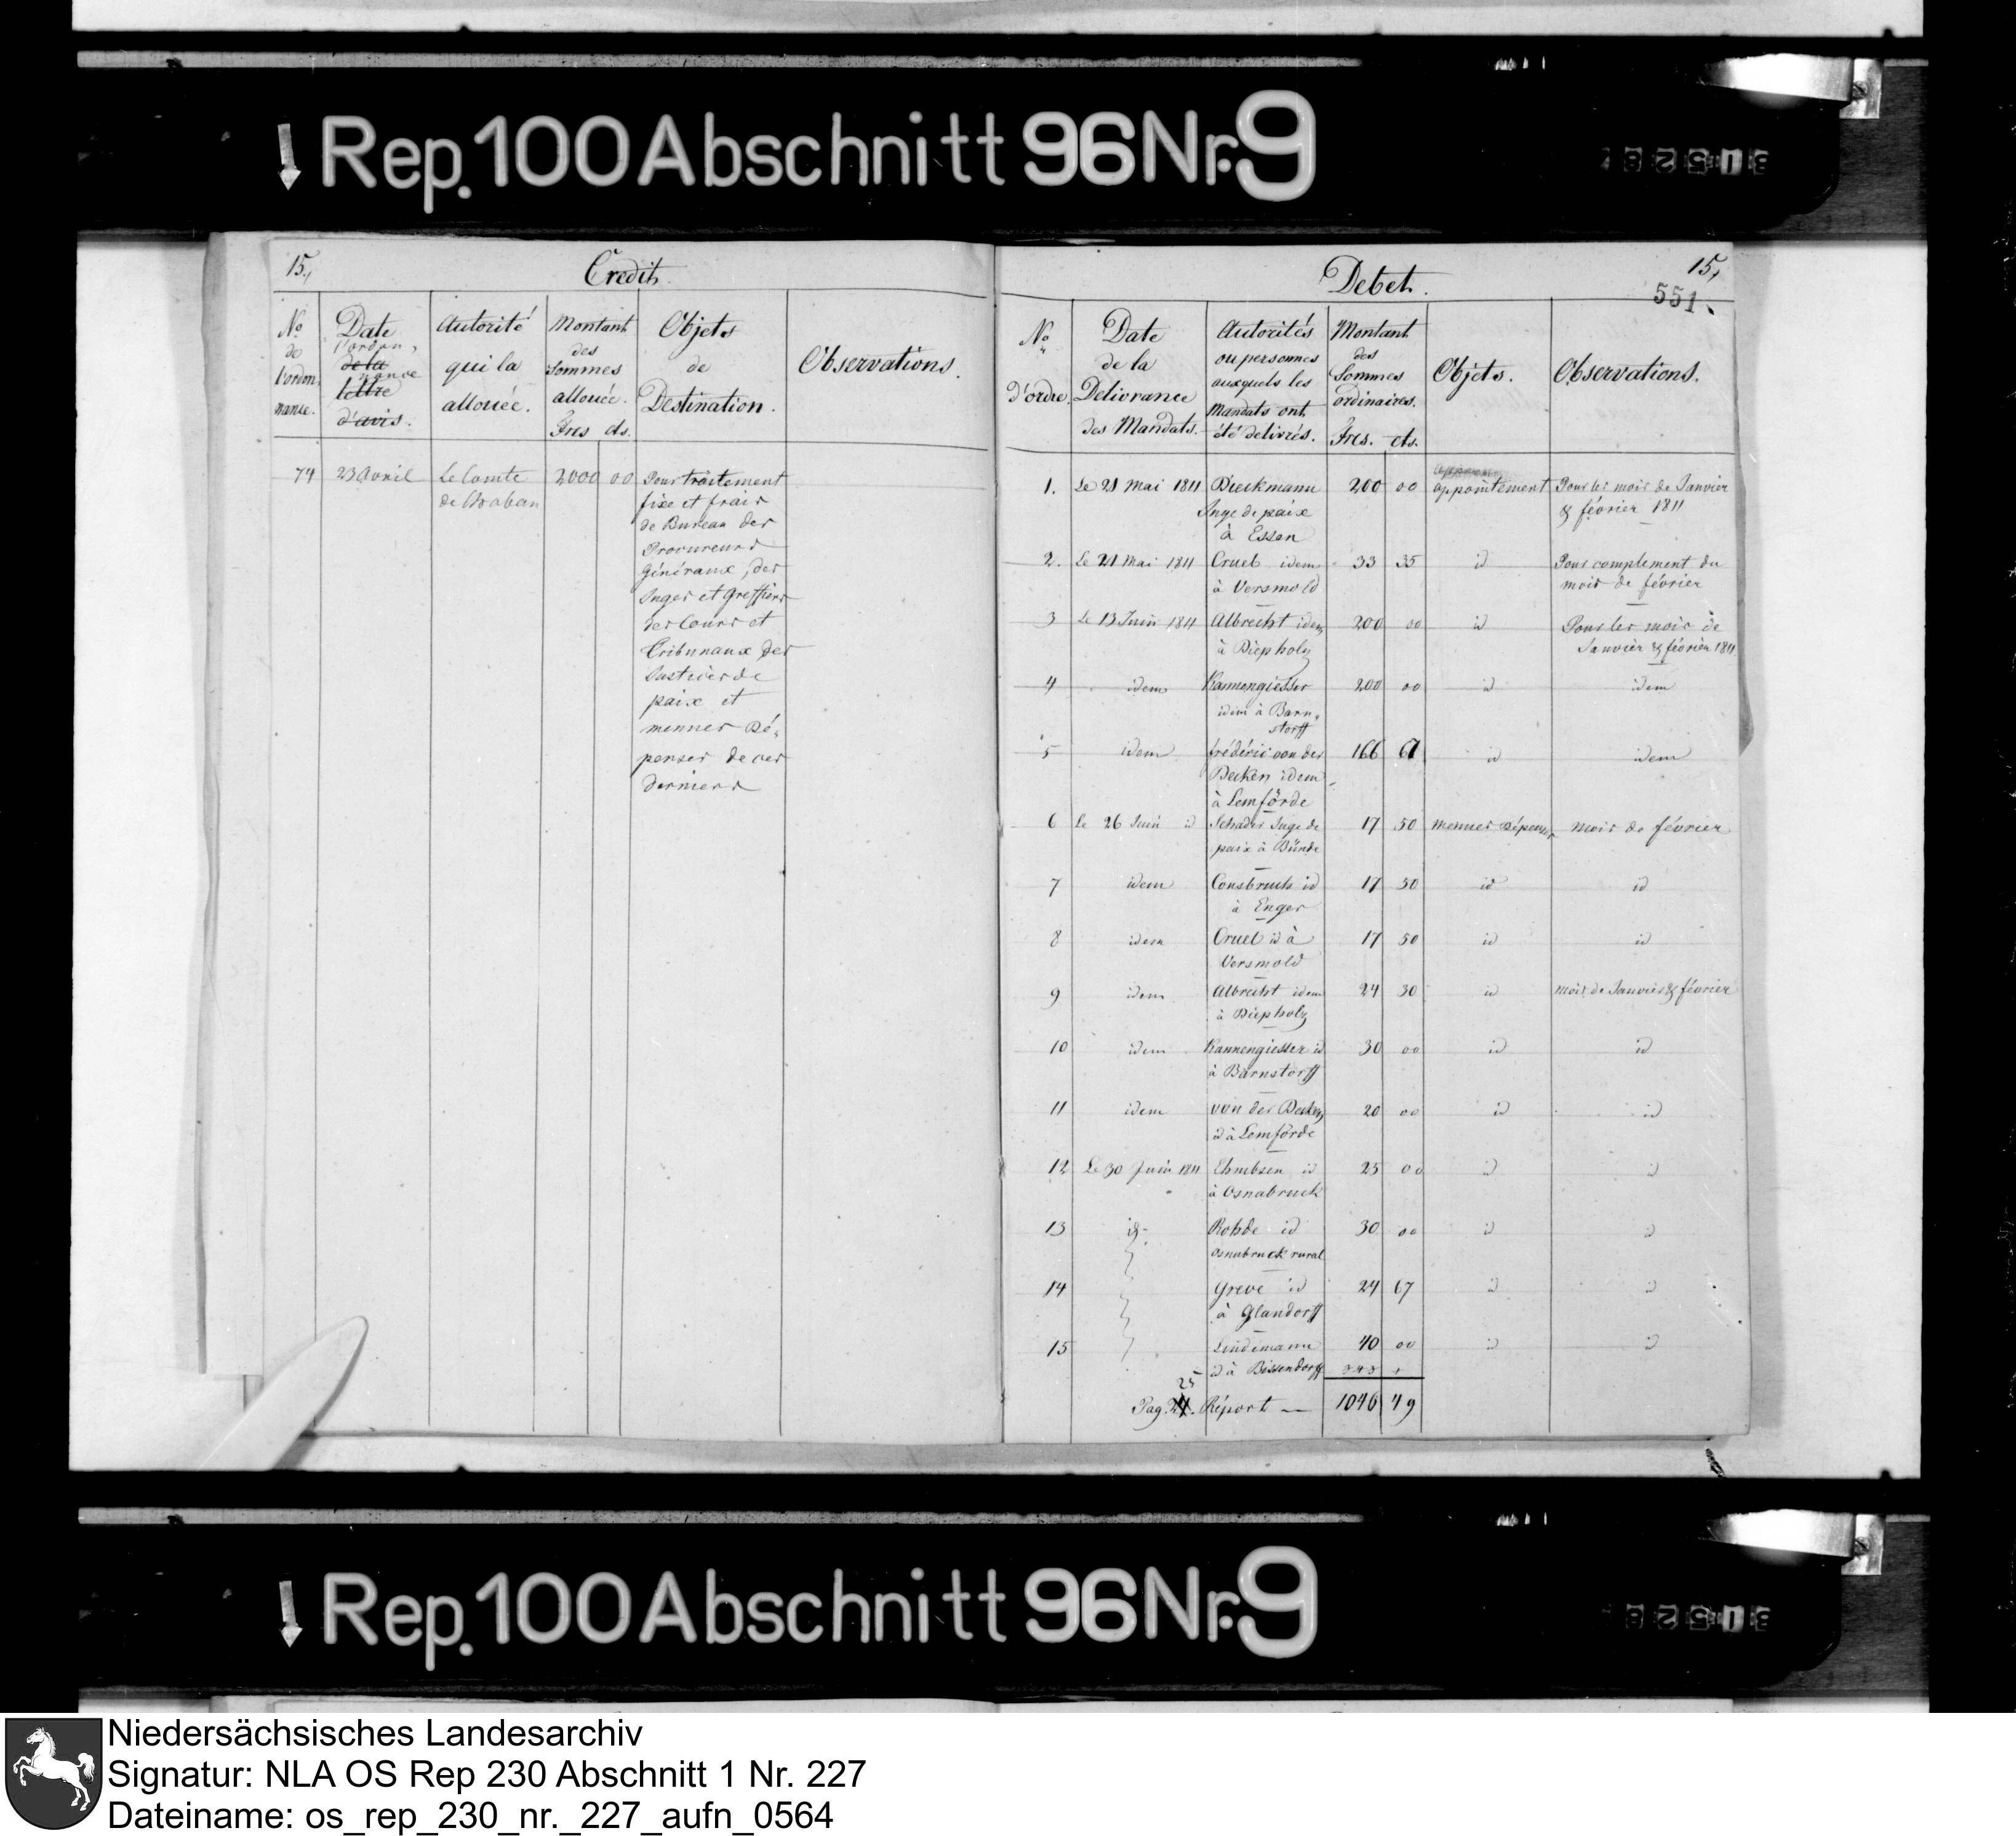 Rep. 100 Abschnitt 96 Nr. 9
31528
15.,
Credit.
No de l'ordonnance.
Date l'ordonnance de la lettre d'avis.
Autorité qui la allouée.
Montant des Sommes allouée. Frcs cts.
Objets de Destination.
Observations.
74 23 Avril Le Comte 2000 00 Pour traitement
de Chaban fixe et frais
de Bureau des
Procureurs
Généraux, des
Juges et Greffiers
des Cours et
Tribunaux des
Justices de
paix et
menues Dé-
penses de ces
derniers
Debet.
15,
551.
No d'ordre.
Date de la Delivrance des Mandats.
Autorités ou personnes auxquels les Mandats ont été delivrés.
Montant des Sommes ordinaires. Frcs. cts.
Objets.
Observations.
1. Le 21 Mai 1811 Dieckmann 200 00 appointement Pour les mois de Janvier
Juge de paix & février 1811
à Essen
2. Le 21 Mai 1811 Cruel idem 33 35 id Pour complement du
à Versmold mois de février
3 Le 13 Juin 1811 Albrecht idem 200 00 id Pour les mois de
à Diepholz Janvier & février 1811
4 idem Kannengiesser 200 00 id idem
idem à Barn-
storff
5 idem frédéric von der 166 67 id idem
Decken idem
à Lemförde
6 Le 26 Juin id Schader Juge de 17 50 menues Dépenses mois de février
paix à Bünde
7 idem Consbruch id 17 50 id id
à Enger
8 idem Cruel id à 17 50 id id
Versmold
9 idem Albrecht idem 24 30 id mois de Janvier & février
à Diepholz
10 idem Kannengiesser id 30 00 id id
à Barnstorff
11 idem von der Decken 20 00 id id
id à Lemförde
12 Le 30 Juin 1811 id 25 00 id id
à Osnabruck
13 id Rohde id 30 00 id id
Osnabruck rural
14 Greve id 24 67 id id
à Glandorff
15 Lindemann 40 00 id id
id à Bissendorff
25
Pag. 24. Réport — 1046 49
Rep. 100 Abschnitt 96 Nr. 9
31528
Niedersächsisches Landesarchiv
Signatur: NLA OS Rep 230 Abschnitt 1 Nr. 227
Dateiname: os_rep_230_nr._227_aufn_0564